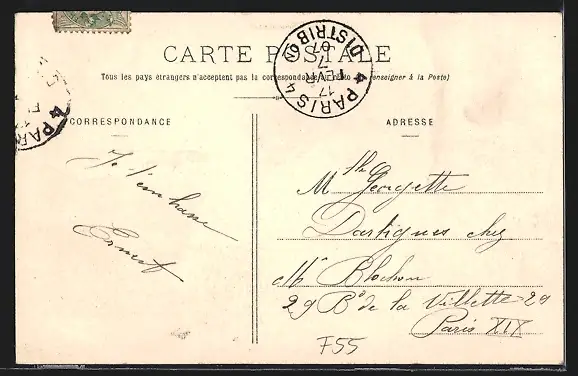 CARTE POSTALE
Tous les pays étrangers n'acceptent pas la correspondance au recto (Se renseigner à la Poste)
PARIS 4
DISTRIBON
17
FEVR
07
4 PAR
CORRESPONDANCE
ADRESSE
Je t'embrasse
Ernest
Mlle Georgette
Dartigues chez
Mr Blochon
29 Bd de la Villette 29
Paris XIX
F55